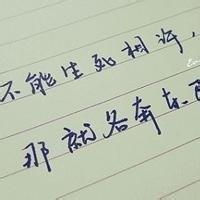 不能生死相许，
那就各奔东